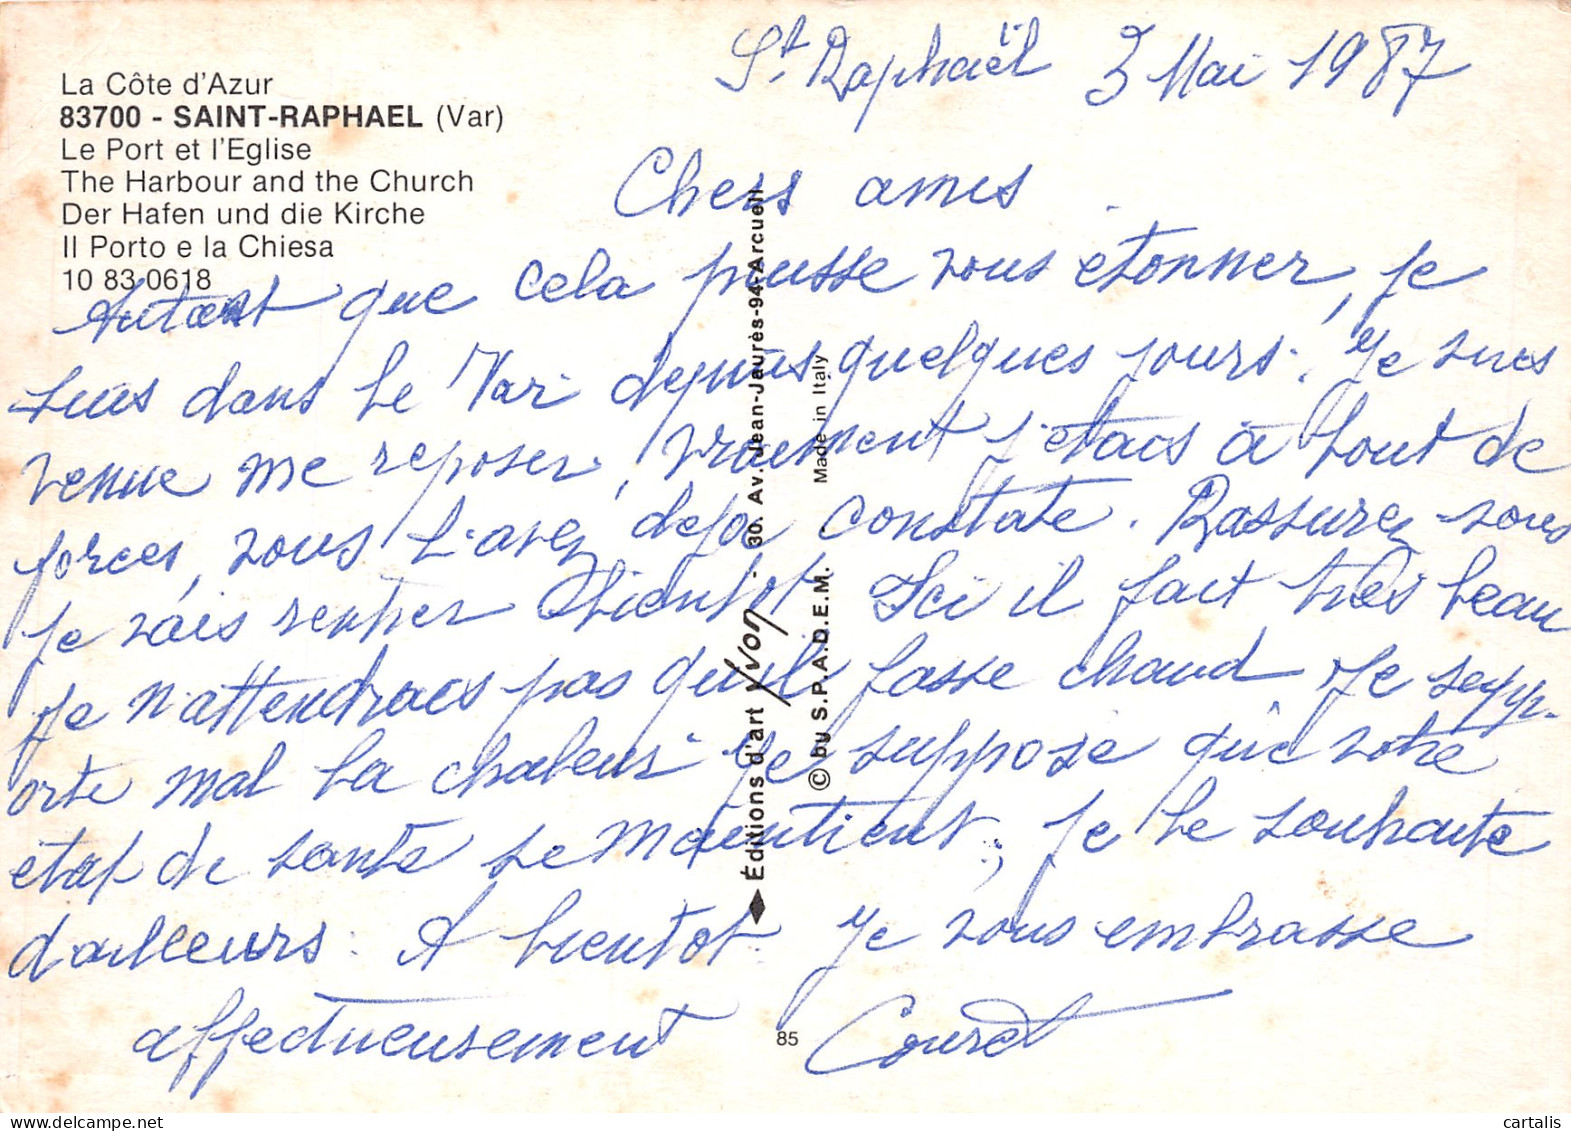 St Raphaël 3 Mai 1987
La Côte d'Azur
83700 - SAINT-RAPHAEL (Var)
Le Port et l'Eglise
The Harbour and the Church
Der Hafen und die Kirche
Il Porto e la Chiesa
10 83 0618
Chers amis
Autant que cela puisse vous étonner, je
suis dans le Var depuis quelques jours. Je suis
venue me reposer, vraiment j'étais à bout de
forces, vous l'avez déjà constaté. Rassurez-vous
je vais rentrer bientôt. Ici il fait très beau
je n'attendrais pas qu'il fasse chaud. Je supp-
orte mal la chaleur. Je suppose que votre
état de santé se maintient, je le souhaite
d'ailleurs. A bientôt Je vous embrasse
affectueusement Couret
Éditions d'art Yvon - 30. Av. Jean-Jaurès-94-Arcueil
© by S.P.A.D.E.M. - Made in Italy
85
cartalis